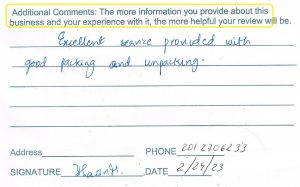 Additional Comments: The more information you provide about this
business and your experience with it, the more helpful your review will be.
Excellent service provided with
good packing and unpacking.
Address PHONE 2012306233
SIGNATURE DATE 2/24/23